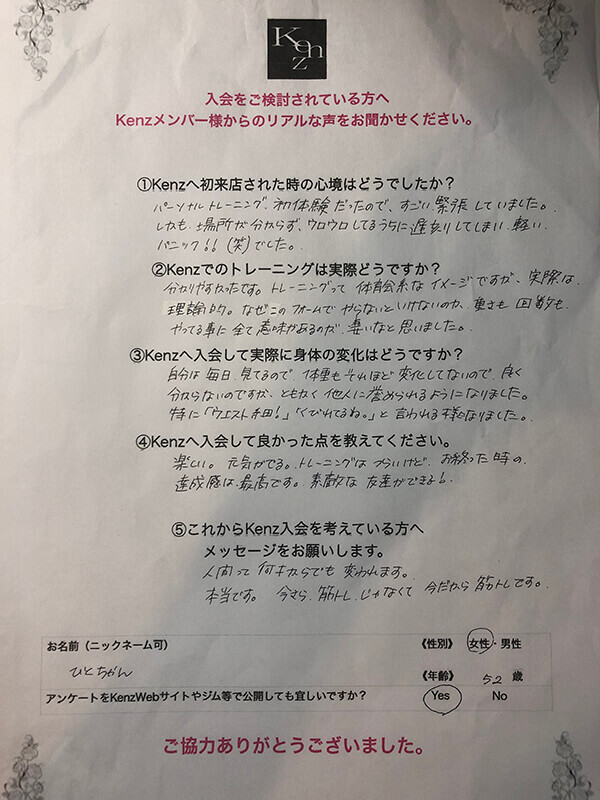 Kenz
入会をご検討されている方へ
Kenzメンバー様からのリアルな声をお聞かせください。
①Kenzへ初来店された時の心境はどうでしたか？
パーソナルトレーニング 初体験だったので、すごい緊張していました。
しかも 場所が分からず、ウロウロしてるうちに遅刻してしまい、軽い
パニック!!(笑)でした。
②Kenzでのトレーニングは実際どうですか？
分かりやすかったです。トレーニングって 体育会系なイメージですが、実際は
理論的。なぜこのフォームでやらないといけないのか、重さも回数も
やってる事に全て意味があるのが 凄いなと思いました。
③Kenzへ入会して実際に身体の変化はどうですか？
自分は毎日見てるので、体重もそれほど変化してないので、良く
分からないのですが、ともかく他人に誉められるようになりました。
特に「ウエスト細！」「くびれてるね。」と言われる様になりました。
④Kenzへ入会して良かった点を教えてください。
楽しい。元気がでる。トレーニングはつらいけど、お終った時の
達成感は最高です。素敵な友達ができるよ！
⑤これからKenz入会を考えている方へ
メッセージをお願いします。
人間って何才からでも変われます。
本当です。今さら筋トレ、じゃなくて 今だから筋トレです。
お名前（ニックネーム可）
《性別》 女性・男性
ひとちゃん
《年齢》 52 歳
アンケートをKenzWebサイトやジム等で公開しても宜しいですか？ Yes No
ご協力ありがとうございました。